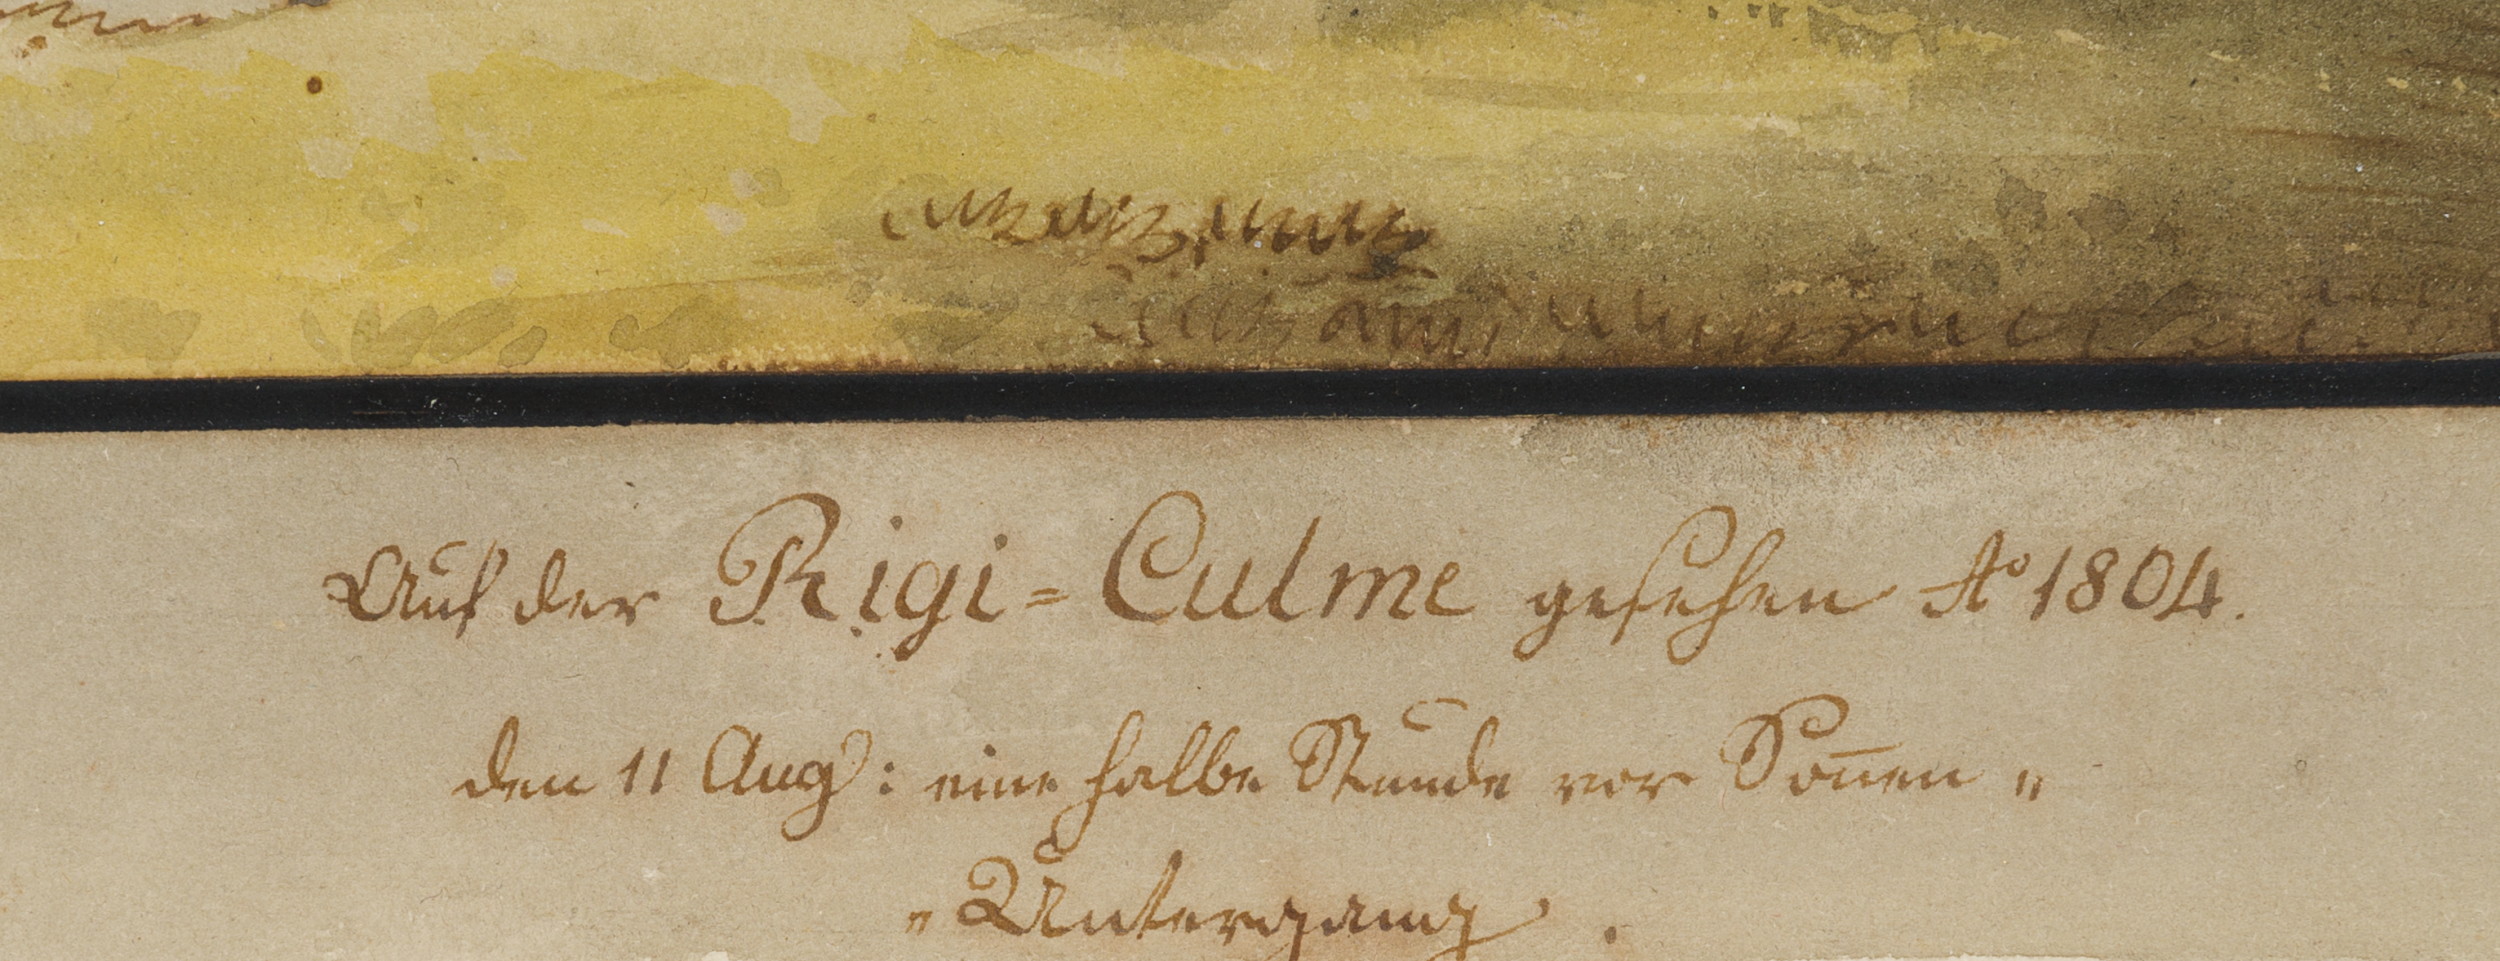 Auf der Rigi=Culme gesehen Aº 1804.
den 11 Aug: eine halbe Stunde vor Son̄en „
„ Untergang .